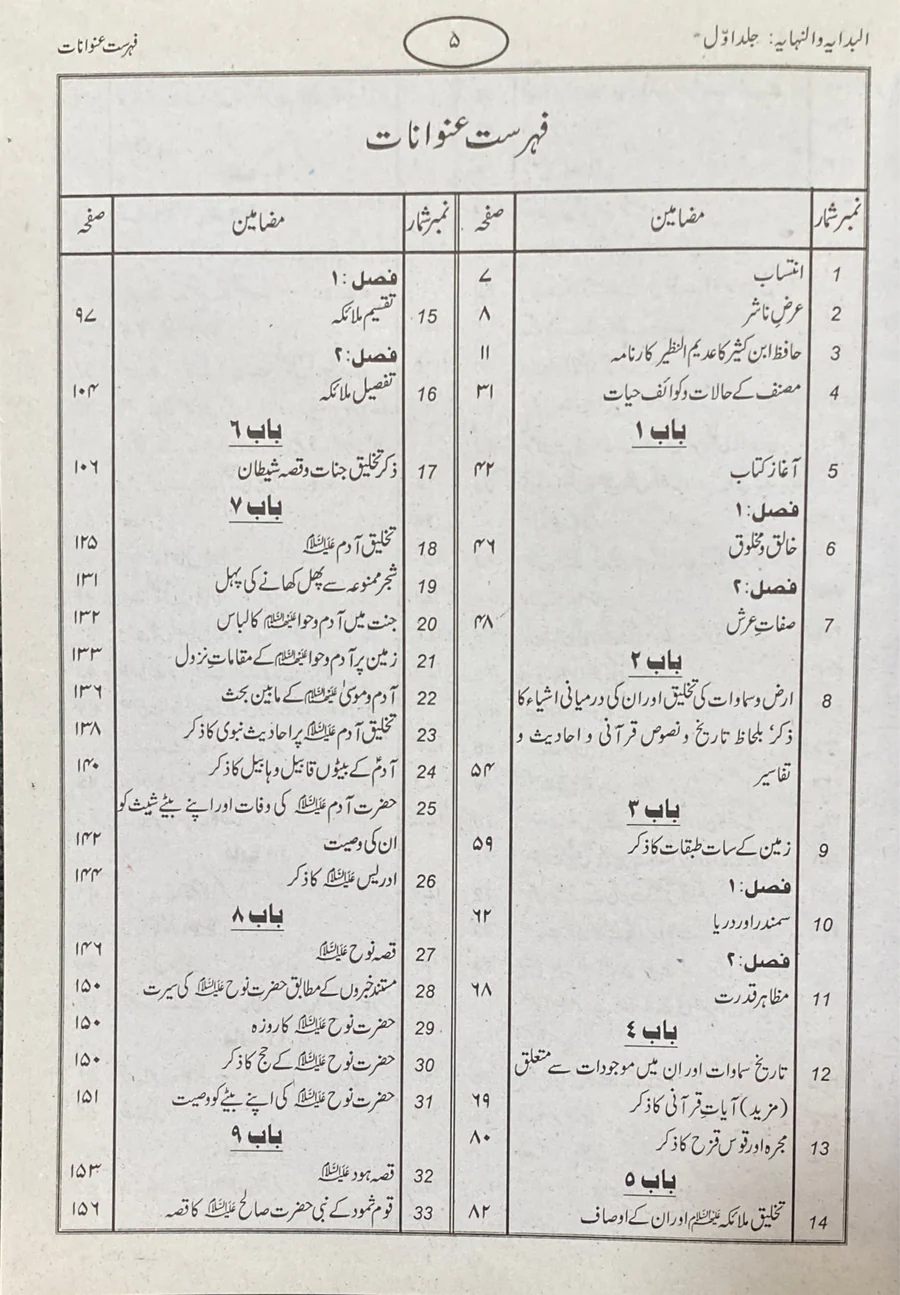 البدایہ والنہایہ: جلد اوّل
۵
فہرست عنوانات
فہرست عنوانات
نمبر شمار مضامین صفحہ
1 انتساب ۷
2 عرضِ ناشر ۸
3 حافظ ابن کثیر کا عدیم النظیر کارنامہ ۱۱
4 مصنف کے حالات و کوائف حیات ۳۱
باب ۱
5 آغاز کتاب ۴۲
فصل: ۱
6 خالق و مخلوق ۴۶
فصل: ۲
7 صفاتِ عرش ۴۸
باب ۲
8 ارض و سماوات کی تخلیق اور ان کی درمیانی اشیاء کا
ذکر' بلحاظ تاریخ و نصوص قرآنی و احادیث و
تفاسیر ۵۴
باب ۳
9 زمین کے سات طبقات کا ذکر ۵۹
فصل: ۱
10 سمندر اور دریا ۶۲
فصل: ۲
11 مظاہر قدرت ۶۸
باب ۴
12 تاریخ سماوات اور ان میں موجودات سے متعلق
(مزید) آیاتِ قرآنی کا ذکر ۶۹
13 مجرہ اور قوس قزح کا ذکر ۸۰
باب ۵
14 تخلیق ملائکہ علیہم السلام اور ان کے اوصاف ۸۲
نمبر شمار مضامین صفحہ
فصل: ۱
15 تقسیم ملائکہ ۹۷
فصل: ۲
16 تفصیل ملائکہ ۱۰۴
باب ۶
17 ذکر تخلیق جنات و قصہ شیطان ۱۰۶
باب ۷
18 تخلیق آدم علیہ السلام ۱۲۵
19 شجر ممنوعہ سے پھل کھانے کی پہل ۱۳۱
20 جنت میں آدم و حوا علیہما السلام کا لباس ۱۳۲
21 زمین پر آدم و حوا علیہما السلام کے مقاماتِ نزول ۱۳۳
22 آدم و موسیٰ علیہما السلام کے مابین بحث ۱۳۶
23 تخلیق آدم علیہ السلام پر احادیث نبوی کا ذکر ۱۳۸
24 آدمؑ کے بیٹوں قابیل و ہابیل کا ذکر ۱۴۰
25 حضرت آدم علیہ السلام کی وفات اور اپنے بیٹے شیث کو
ان کی وصیت ۱۴۲
26 ادریس علیہ السلام کا ذکر ۱۴۴
باب ۸
27 قصہ نوح علیہ السلام ۱۴۶
28 مستند خبروں کے مطابق حضرت نوح علیہ السلام کی سیرت ۱۵۰
29 حضرت نوح علیہ السلام کا روزہ ۱۵۰
30 حضرت نوح علیہ السلام کے حج کا ذکر ۱۵۰
31 حضرت نوح علیہ السلام کی اپنے بیٹے کو وصیت ۱۵۱
باب ۹
32 قصہ ہود علیہ السلام ۱۵۳
33 قوم ثمود کے نبی حضرت صالح علیہ السلام کا قصہ ۱۵۶